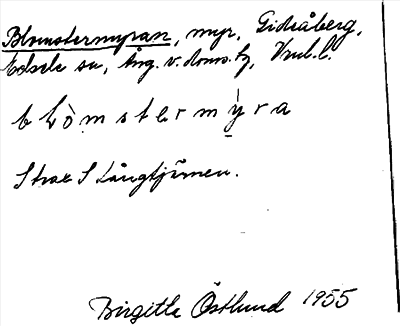 Blomstermyran, myr, Gideåberg,
Edsele sn, Ång. v. doms. tg, Vnl. l.
blòmstermỳra
Strax S Långtjärnen.
Birgitta Östlund 1955